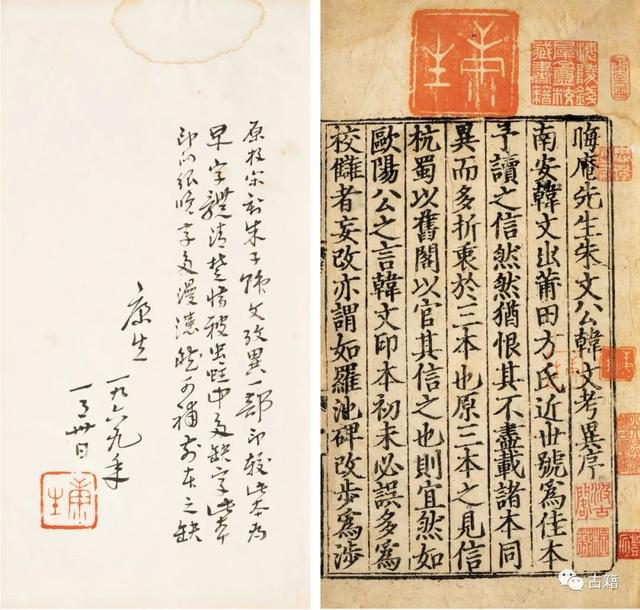 原有宋刊朱子韓文攷異一部印較此本为
早字體清楚惜被虫蛀中多缺字此本
印的很晚字多漫漶然可補前本之缺
康生
一九六九年
一月卅日
康生
康生
海陵錢犀盦校藏書籍
晦庵先生朱文公韓文考異序
南安韓文出莆田方氏近世號爲佳本
予讀之信然然猶恨其不盡載諸本同
異而多折衷於三本也原三本之見信
杭蜀以舊閣以官其信之也則宜然如
歐陽公之言韓文印本初未必誤多爲
校讎者妄改亦謂如羅池碑改步爲涉
汲古閣
古籍